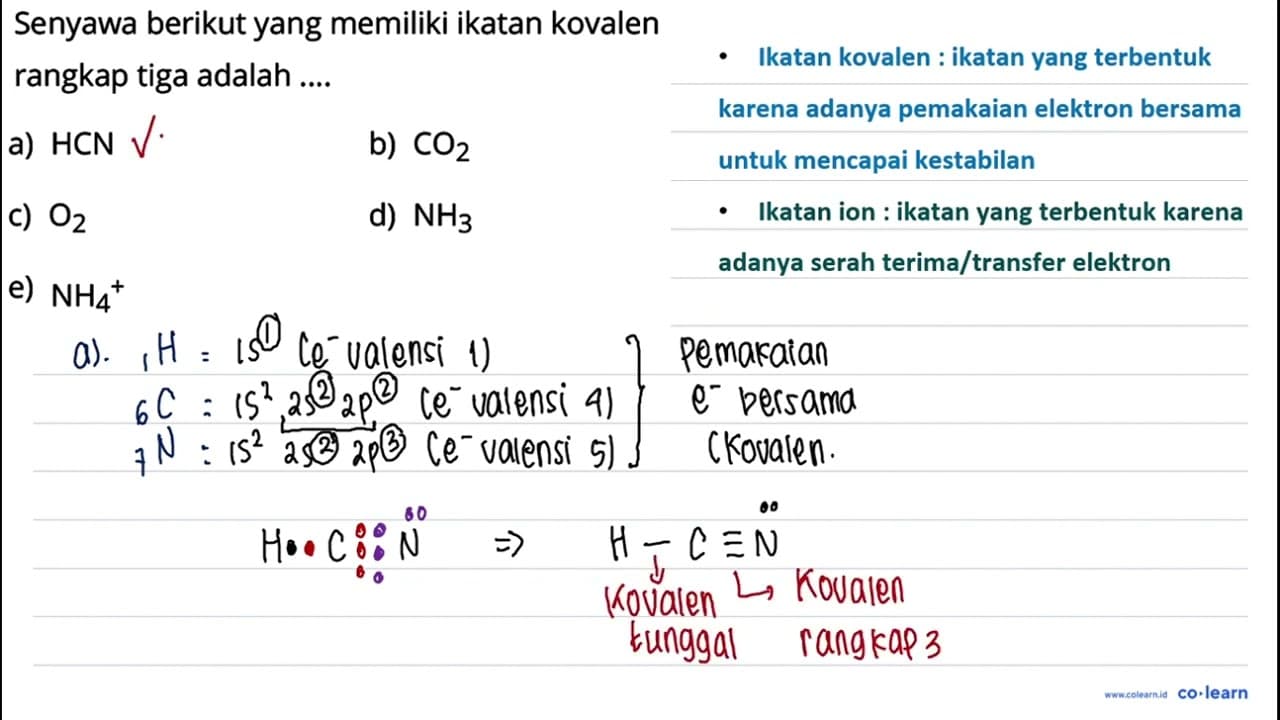 Senyawa berikut yang memiliki ikatan kovalen
rangkap tiga adalah ....
a) HCN √.
b) CO₂
c) O₂
d) NH₃
e) NH₄⁺
• Ikatan kovalen : ikatan yang terbentuk
karena adanya pemakaian elektron bersama
untuk mencapai kestabilan
• Ikatan ion : ikatan yang terbentuk karena
adanya serah terima/transfer elektron
a). ₁H = 1s¹ (e⁻ valensi 1)
₆C : 1s² 2s² 2p² (e⁻ valensi 4)
₇N : 1s² 2s² 2p³ (e⁻ valensi 5)
Pemakaian
e⁻ bersama
(Kovalen.
H •• C ⋮⋮ N => H — C ≡ N
Kovalen
tunggal
Kovalen
rangkap 3
www.colearn.id co·learn